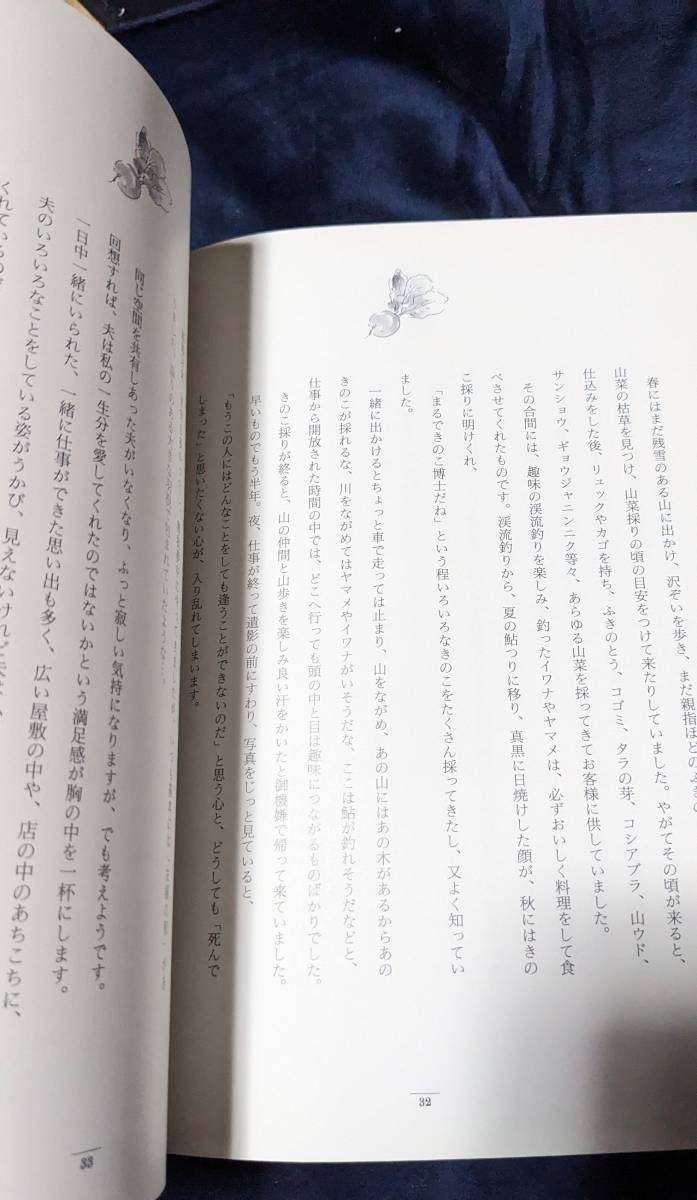 春にはまだ残雪のある山に出かけ、沢ぞいを歩き、まだ親指ほどのふきの
山菜の枯草を見つけ、山菜採りの頃の目安をつけて来たりしていました。やがてその頃が来ると
仕込みをした後、リュックやカゴを持ち、ふきのとう、コゴミ、タラの芽、コシアブラ、山ウド、
サンショウ、ギョウジャニンニク等々、あらゆる山菜を採ってきてお客様に供していました。
その合間には、趣味の渓流釣りを楽しみ、釣ったイワナやヤマメは、必ずおいしく料理をして食
べさせてくれたものです。渓流釣りから、夏の鮎つりに移り、真黒に日焼けした顔が、秋にはきの
こ採りに明けくれ、
「まるできのこ博士だね」という程いろいろなきのこをたくさん採ってきたし、又よく知ってい
ました。
一緒に出かけるとちょっと車で走っては止まり、山をながめ、あの山にはあの木があるからあの
きのこが採れるな、川をながめてはヤマメやイワナがいそうだな、ここは鮎が釣れそうだなどと、
仕事から開放された時間の中では、どこへ行っても頭の中と目は趣味につながるものばかりでした。
きのこ採りが終ると、山の仲間と山歩きを楽しみ良い汗をかいたと御機嫌で帰って来ていました。
早いものでもう半年。夜、仕事が終って遺影の前にすわり、写真をじっと見ていると、
「もうこの人にはどんなことをしても逢うことができないのだ」と思う心と、どうしても「死んで
しまった」と思いたくない心が、入り乱れてしまいます。
32
同じ空間を共有しあった夫がいなくなり、ふっと寂しい気持になりますが、でも考えようです。
回想すれば、夫は私の一生分を愛してくれたのではないかという満足感が胸の中を一杯にします。
一日中一緒にいられた、一緒に仕事ができた思い出も多く、広い屋敷の中や、店の中のあちこちに、
夫のいろいろなことをしている姿がうかび、見えないけれど
くれているの
33